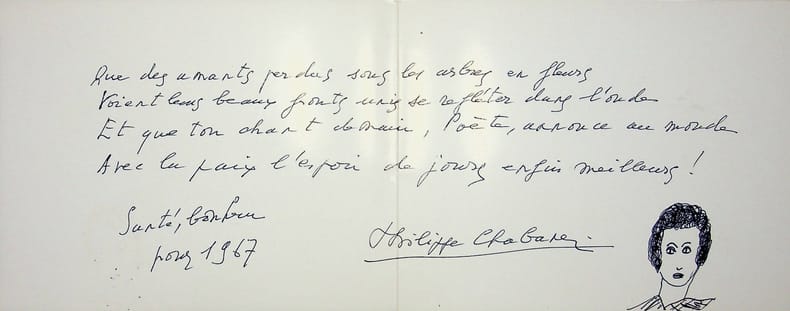 Que des amants perdus sous les arbres en fleurs
Voient leurs beaux fronts unis se refléter dans l'onde
Et que ton chant demain, Poète, annonce au monde
Avec la paix l'espoir de jours enfin meilleurs !
Santé, bonheur
pour 1967
Philippe Chabaneix